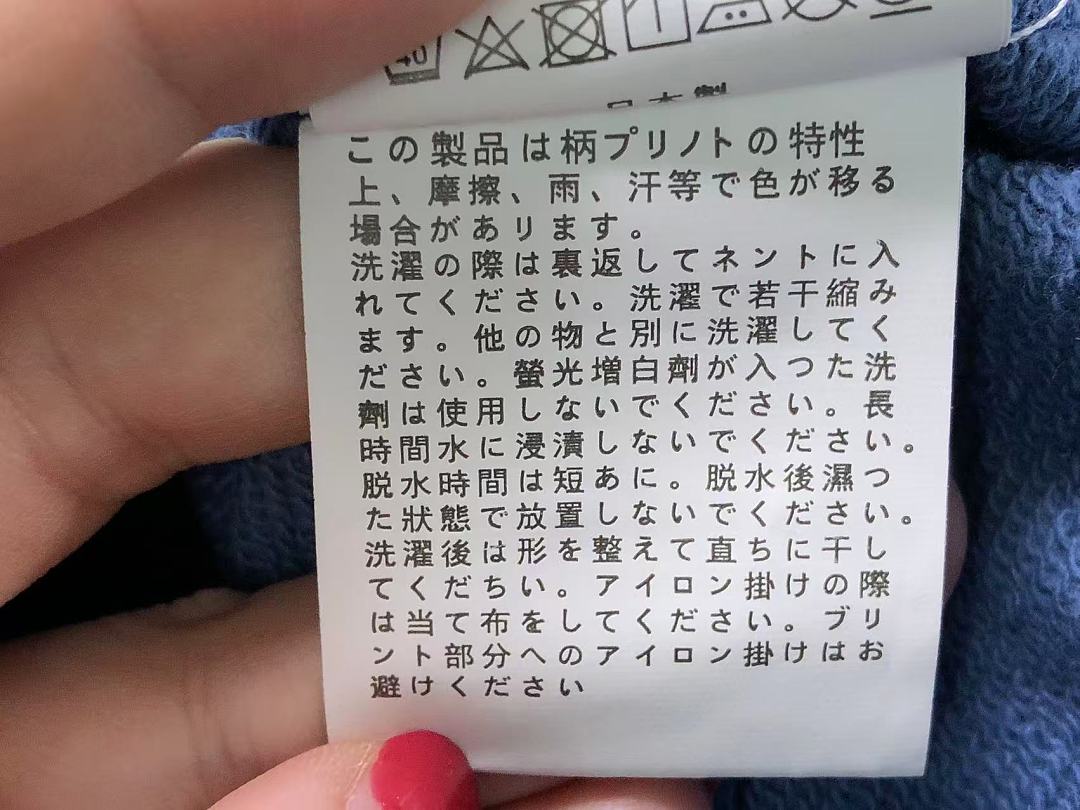 40
日本製
この製品は柄プリノトの特性
上、摩擦、雨、汗等で色が移る
場合があリます。
洗濯の際は裏返してネントに入
れてください。洗濯で若干縮み
ます。他の物と別に洗濯してく
ださい。螢光増白劑が入つた洗
劑は使用しないでください。長
時間水に浸漬しないでください。
脱水時間は短あに。脱水後濕つ
た狀態で放置しないでください。
洗濯後は形を整えて直ちに干し
てくだちい。アイロン掛けの際
は当て布をしてください。ブリ
ント部分へのアイロン掛けはお
避けください